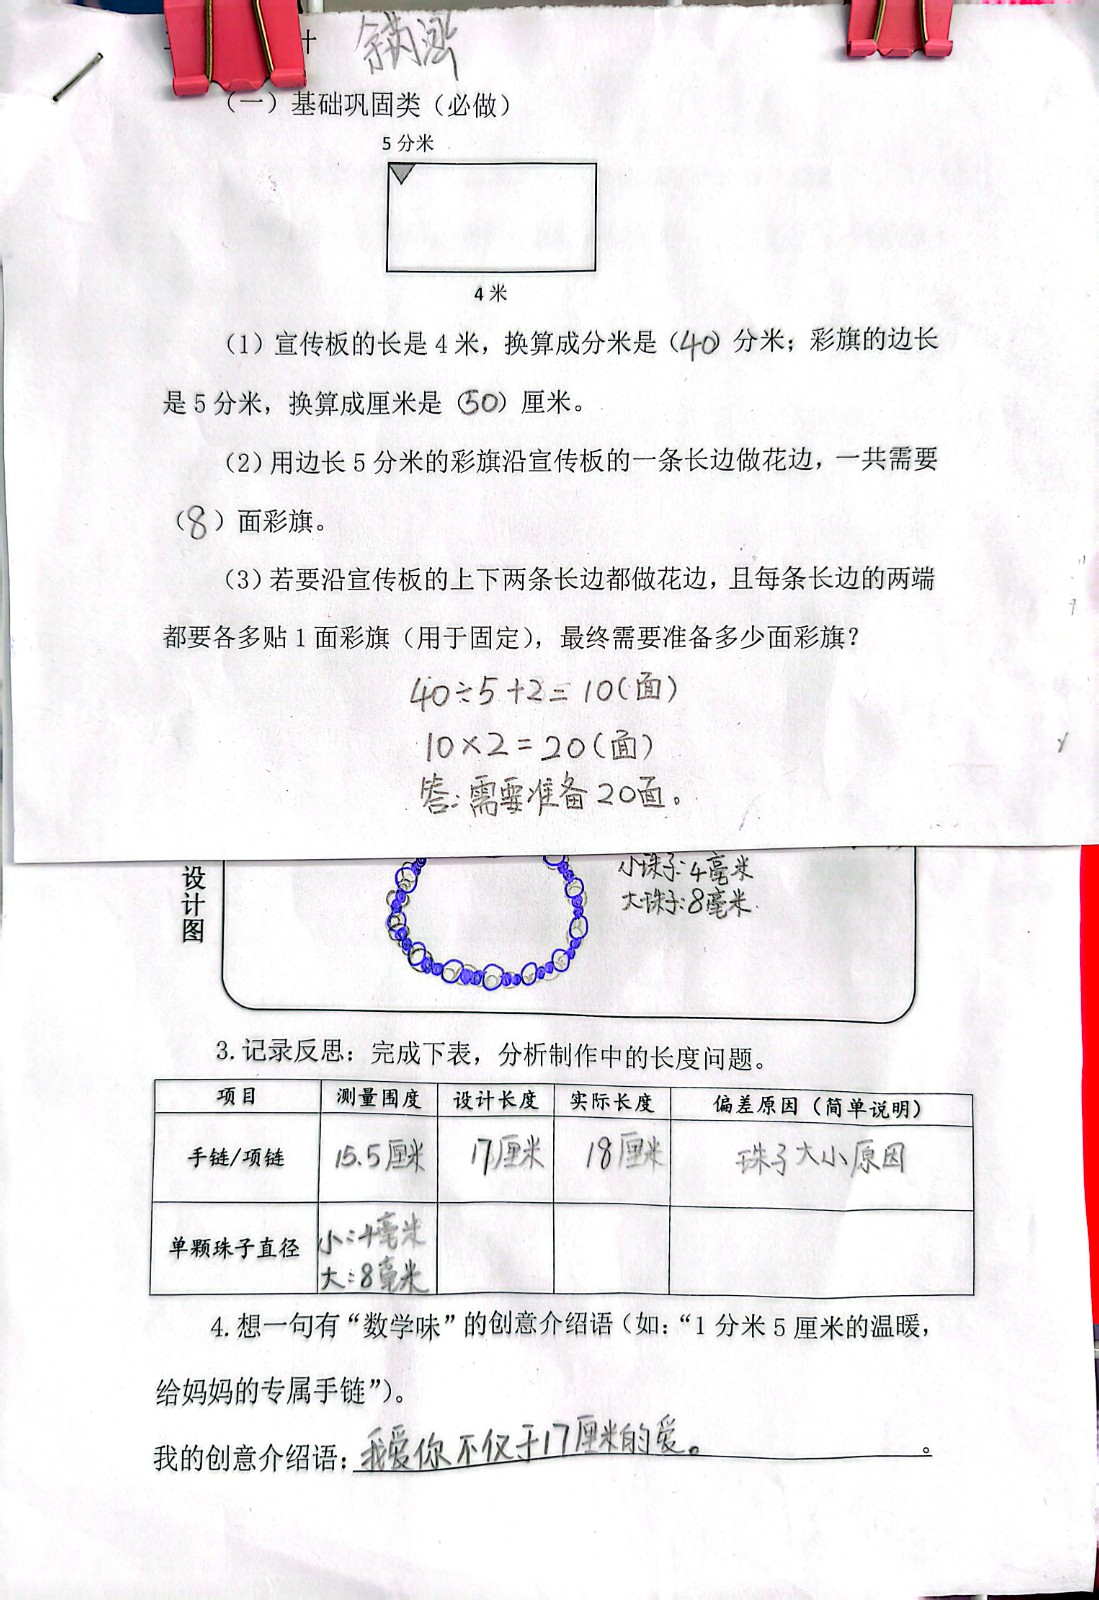 计
（一）基础巩固类（必做）
5 分米
4 米
（1）宣传板的长是 4 米，换算成分米是（40）分米；彩旗的边长
是 5 分米，换算成厘米是（50）厘米。
（2）用边长 5 分米的彩旗沿宣传板的一条长边做花边，一共需要
（8）面彩旗。
（3）若要沿宣传板的上下两条长边都做花边，且每条长边的两端
都要各多贴 1 面彩旗（用于固定），最终需要准备多少面彩旗？
40÷5+2=10(面)
10×2=20(面)
答:需要准备20面。
设计图
小珠子:4毫米
大珠子:8毫米.
3.记录反思：完成下表，分析制作中的长度问题。
项目 测量围度 设计长度 实际长度 偏差原因（简单说明）
手链/项链 15.5厘米 17厘米 18厘米 珠子大小原因
单颗珠子直径 小:4毫米
大:8毫米
4.想一句有“数学味”的创意介绍语（如：“1 分米 5 厘米的温暖，
给妈妈的专属手链”）。
我的创意介绍语：我爱你不仅于17厘米的爱。。